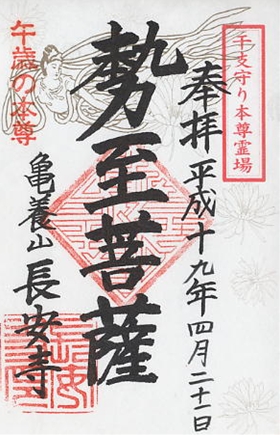 干支守り本尊霊場
奉拝 平成十九年四月二十一日
勢至菩薩
午歳の本尊
亀養山 長安寺